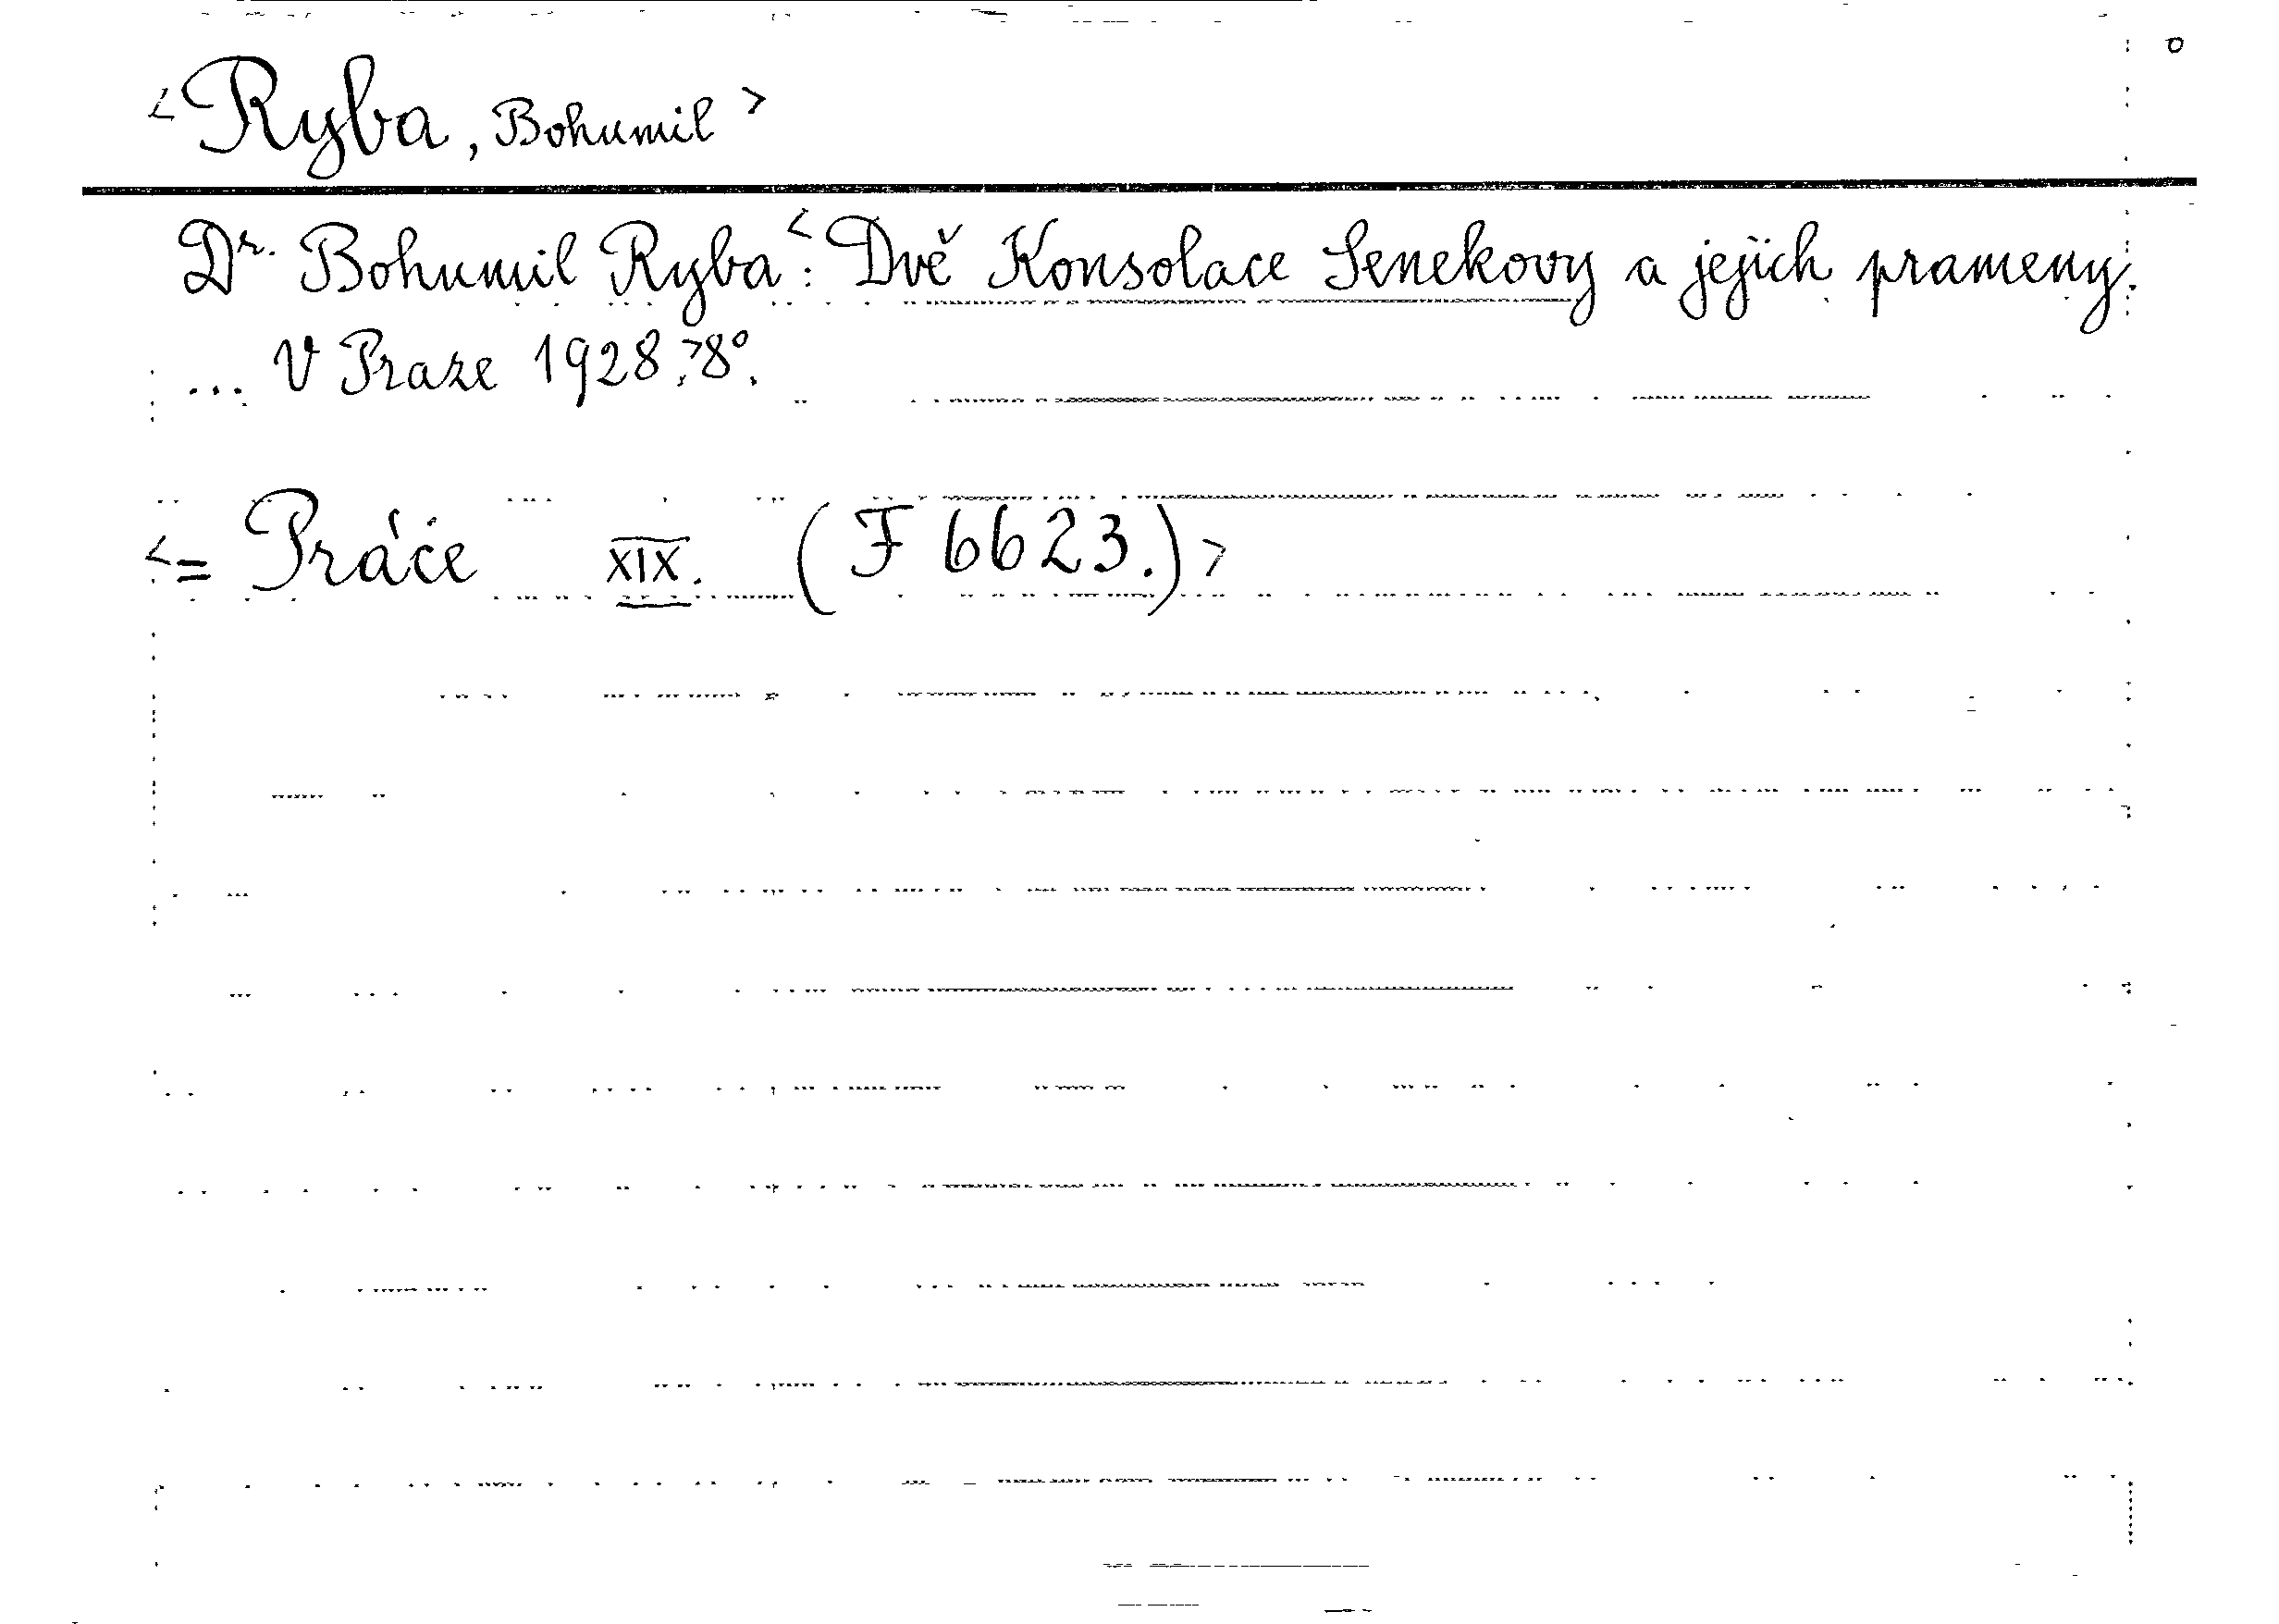 <Ryba, Bohumil>
Dr. Bohumil Ryba<: Dvě Konsolace Senekovy a jejich prameny.
... V Praze 1928.>8°.
<= Práce XIX. (F 6623.)>